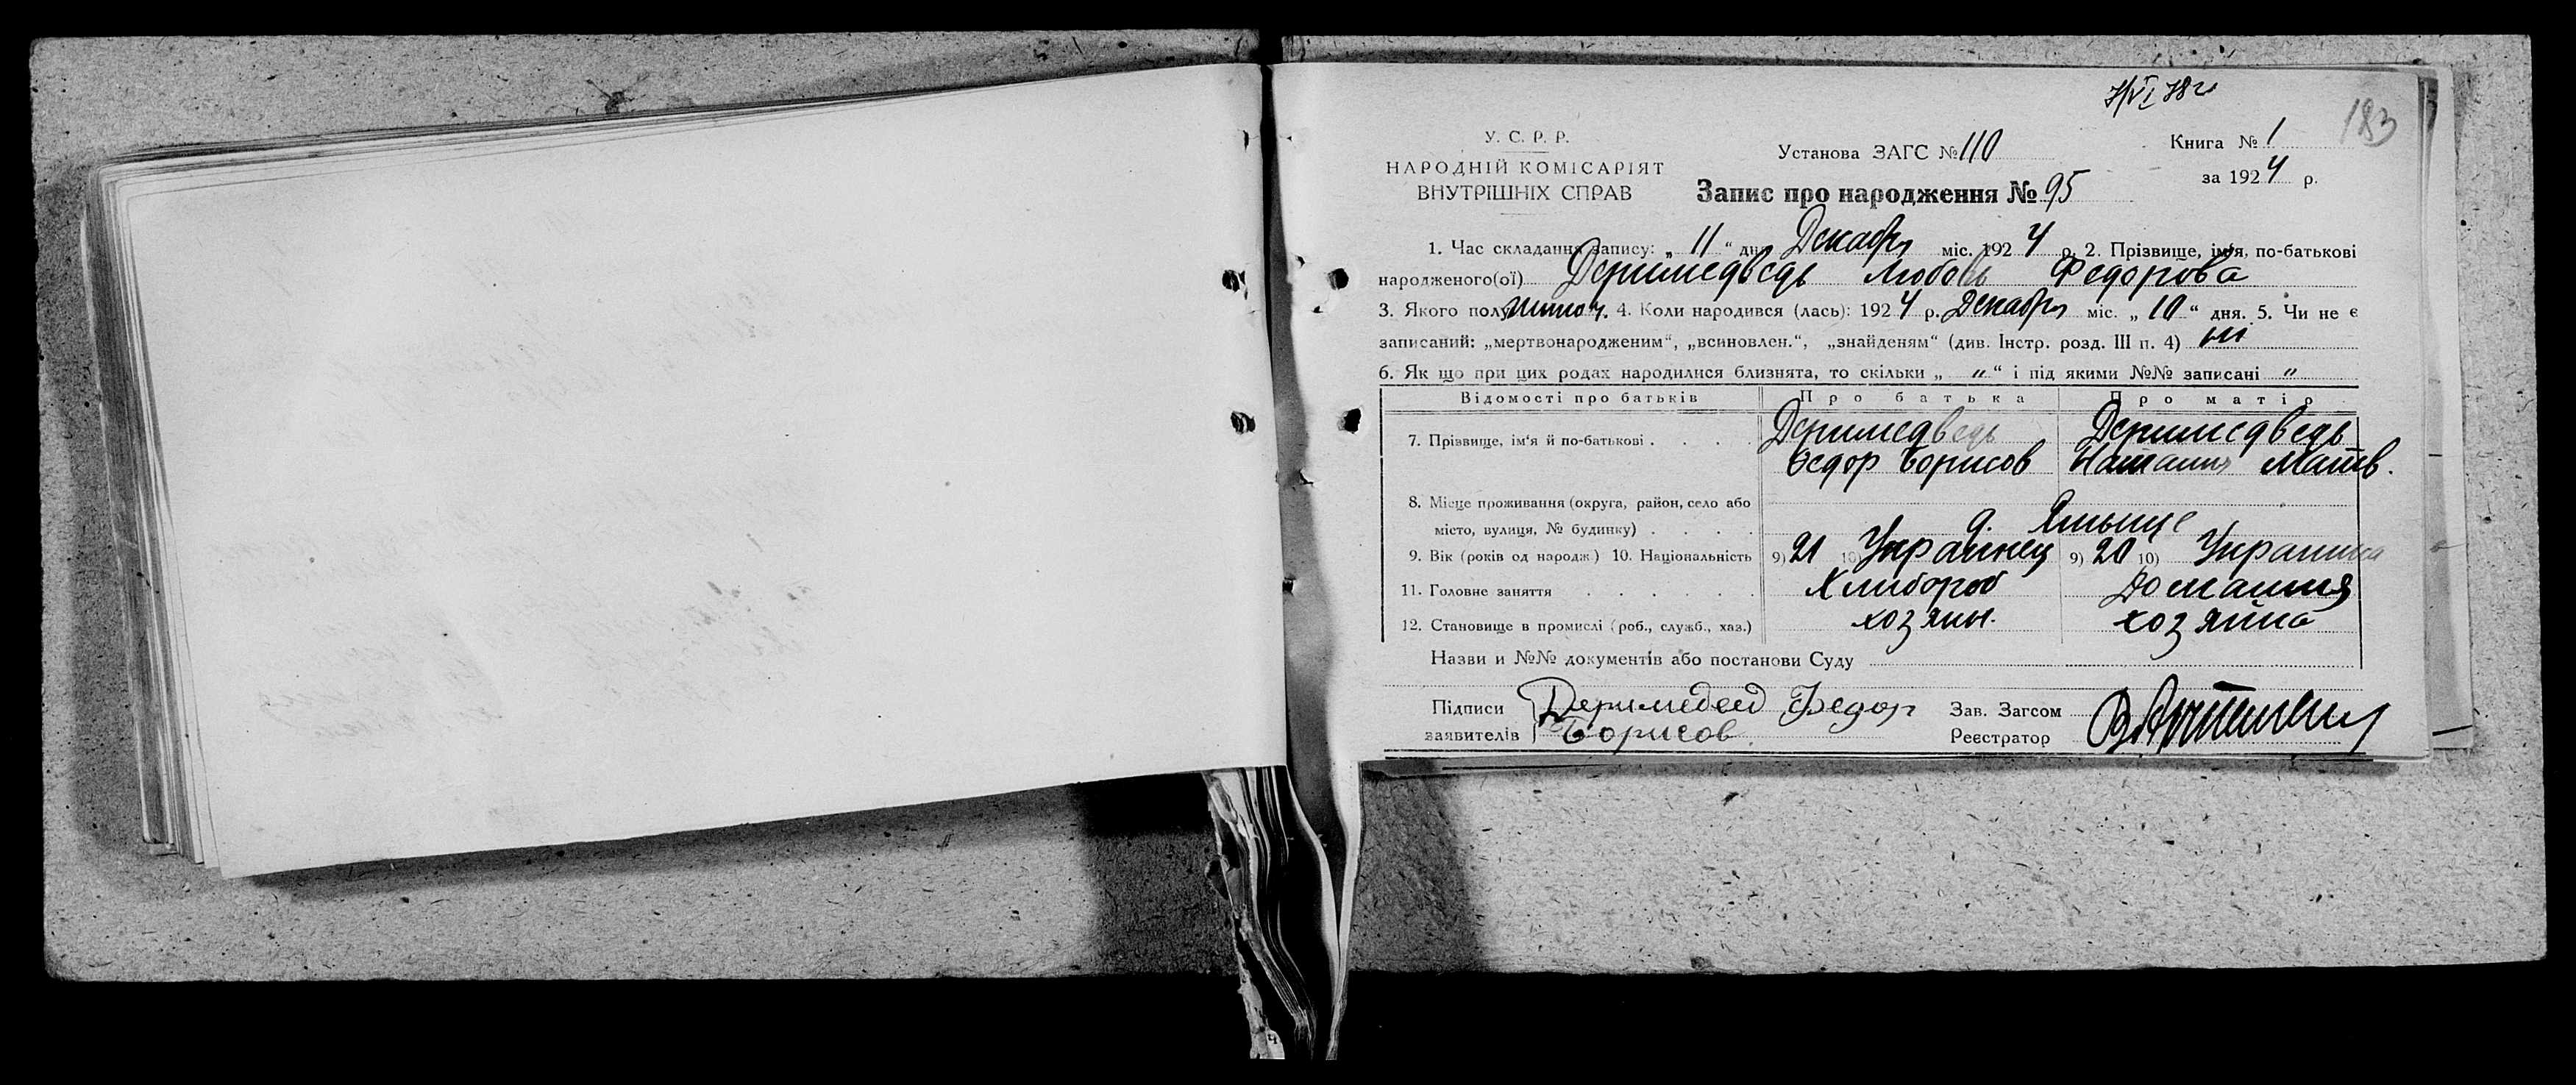 7/VI 78 г
183
У. С. Р. Р.
НАРОДНІЙ КОМІСАРІЯТ
ВНУТРІШНІХ СПРАВ
Установа ЗАГС № 110
Книга № 1
за 1924 р.
Запис про народження № 95
1. Час складання запису: „ 11 “ дня Декабря міс. 1924 р. 2. Прізвище, ім'я, по-батькові
народженого(ої) Деримедведь Любовь Федорова
3. Якого полу жиноч. 4. Коли народився (лась): 1924 р. Декабря міс. „ 10 “ дня. 5. Чи не є
записаний: „мертвонародженим“, „всиновлен.“, „знайденям“ (див. Інстр. розд. III п. 4) ни
6. Як що при цих родах народилися близнята, то скільки „ „ “ і під якими №№ записані „
Відомості про батьків Про батька Про матір
7. Прізвище, ім'я й по-батькові . . . . Деримедведь Деримедведь
Федор Борисов Наталия Матв.
8. Місце проживання (округа, район, село або
місто, вулиця, № будинку) . . . .
9. Вік (років од народж.) 10. Національність 9) 21 10) Украинец 9) 20 10) Украинка
11. Головне заняття . . . . . . Хлибороб Домашня
12. Становище в промислі (роб., служб., хаз.) хозяин. хозяйка
Назви и №№ документів або постанови Суду
Підписи
заявителів
Деримедвед Федор
Борисов
Зав. Загсом
Реєстратор